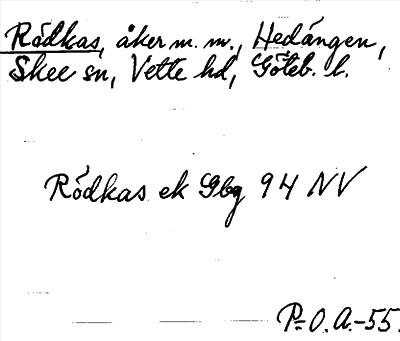 Rödkas, åker m. m., Hedängen,
Skee sn, Vette hd, Göteb. l.
Rödkas ek Gbg 94 NV
P-O. A.-55.